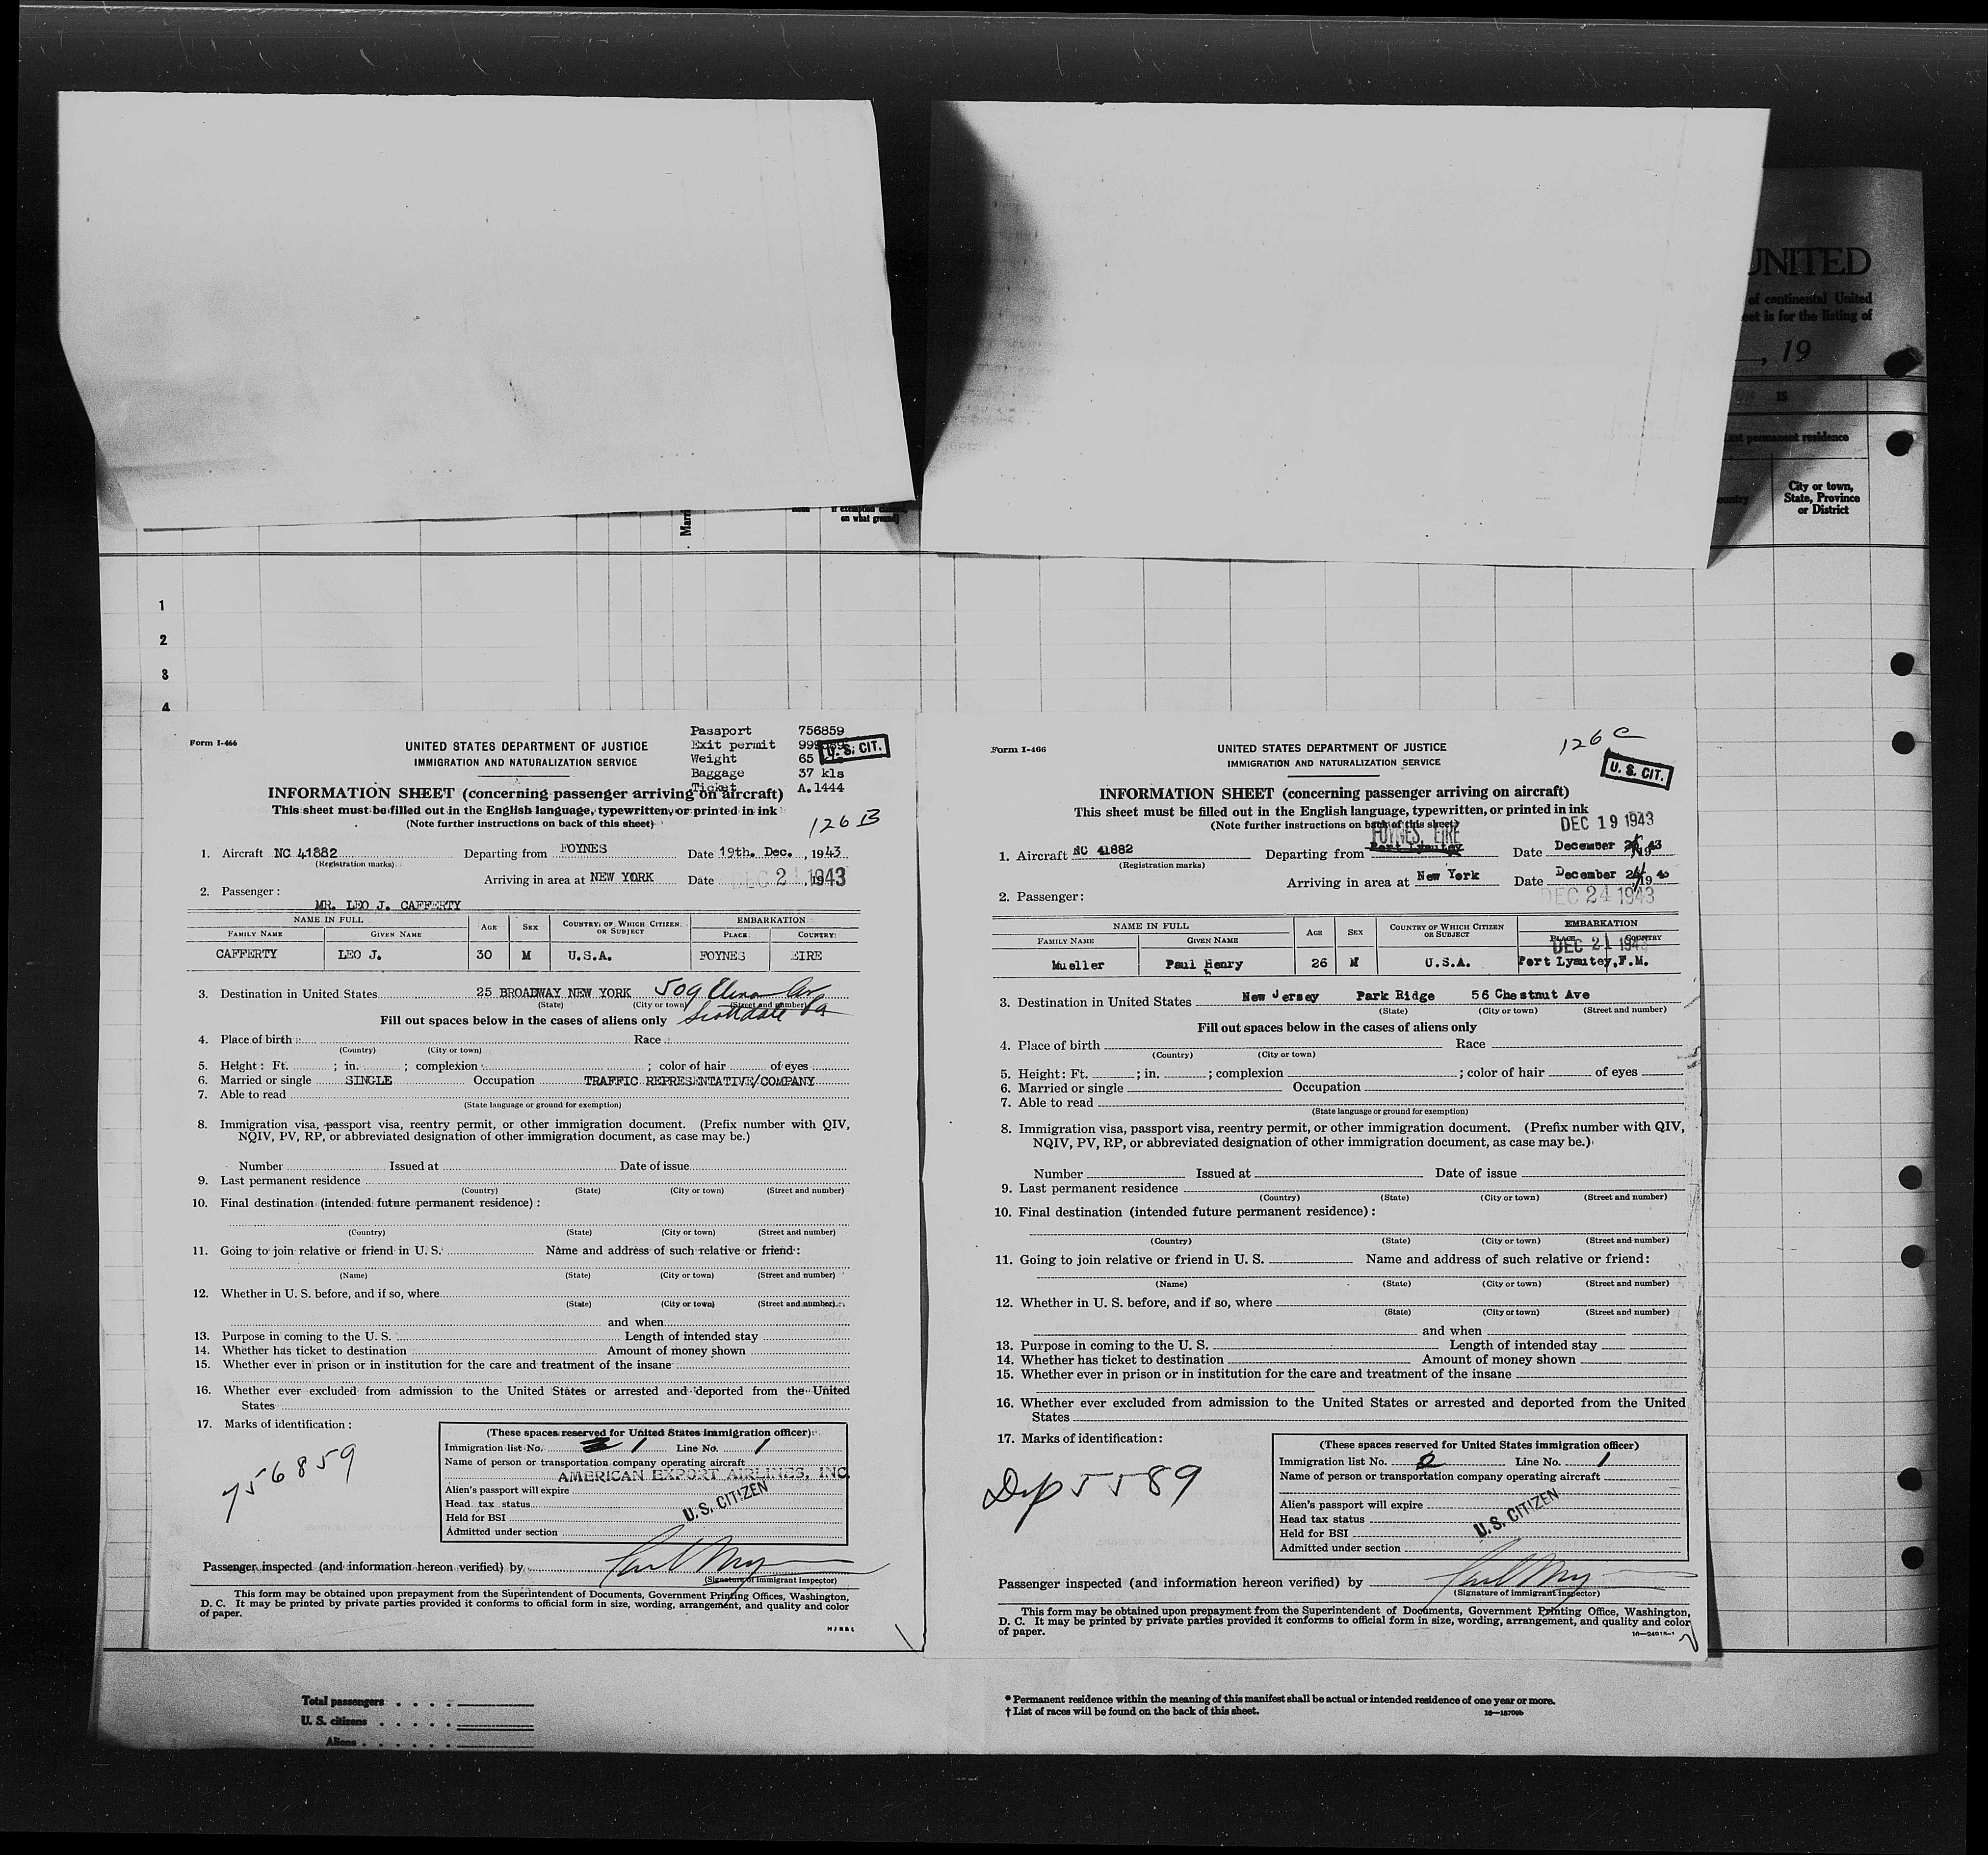 UNITED
of continental United
eet is for the listing of
, 19
15
Last permanent residence
ountry
City or town,
State, Province
or District
Marri
on what ground)
1
2
3
4
Form I-466
UNITED STATES DEPARTMENT OF JUSTICE
IMMIGRATION AND NATURALIZATION SERVICE
Passport 756859
Exit permit
Weight 65
Baggage 37 kls
Ticket A.1444
U. S. CIT.
INFORMATION SHEET (concerning passenger arriving on aircraft)
This sheet must be filled out in the English language, typewritten, or printed in ink
(Note further instructions on back of this sheet)
126 B
1. Aircraft NC 41882 Departing from FOYNES Date 19th. Dec. , 1943
(Registration marks)
Arriving in area at NEW YORK Date DEC 2 1943
2. Passenger:
MR. LEO J. CAFFERTY
NAME IN FULL AGE SEX COUNTRY OF WHICH CITIZEN OR SUBJECT EMBARKATION
FAMILY NAME GIVEN NAME PLACE COUNTRY
CAFFERTY LEO J. 30 M U.S.A. FOYNES EIRE
3. Destination in United States 25 BROADWAY NEW YORK 509
(State) (City or town) (Street and number)
Fill out spaces below in the cases of aliens only Scottdale Pa
4. Place of birth Race
(Country) (City or town)
5. Height: Ft. ; in. ; complexion ; color of hair of eyes
6. Married or single SINGLE Occupation TRAFFIC REPRESENTATIVE/COMPANY
7. Able to read
(State language or ground for exemption)
8. Immigration visa, passport visa, reentry permit, or other immigration document. (Prefix number with QIV,
NQIV, PV, RP, or abbreviated designation of other immigration document, as case may be.)
Number Issued at Date of issue
9. Last permanent residence
(Country) (State) (City or town) (Street and number)
10. Final destination (intended future permanent residence):
(Country) (State) (City or town) (Street and number)
11. Going to join relative or friend in U. S. Name and address of such relative or friend:
(Name) (State) (City or town) (Street and number)
12. Whether in U. S. before, and if so, where
(State) (City or town) (Street and number)
and when
13. Purpose in coming to the U. S. Length of intended stay
14. Whether has ticket to destination Amount of money shown
15. Whether ever in prison or in institution for the care and treatment of the insane
16. Whether ever excluded from admission to the United States or arrested and deported from the United
States
17. Marks of identification:
756859
(These spaces reserved for United States immigration officer)
Immigration list No. 1 Line No. 1
Name of person or transportation company operating aircraft
AMERICAN EXPORT AIRLINES, INC.
Alien's passport will expire
Head tax status
Held for BSI
Admitted under section
U. S. CITIZEN
Passenger inspected (and information hereon verified) by
(Signature of Immigrant Inspector)
This form may be obtained upon prepayment from the Superintendent of Documents, Government Printing Offices, Washington,
D. C. It may be printed by private parties provided it conforms to official form in size, wording, arrangement, and quality and color
of paper.
Form I-466
126 C
UNITED STATES DEPARTMENT OF JUSTICE
IMMIGRATION AND NATURALIZATION SERVICE
U. S. CIT.
INFORMATION SHEET (concerning passenger arriving on aircraft)
This sheet must be filled out in the English language, typewritten, or printed in ink
(Note further instructions on back of this sheet)
FOYNES, EIRE
DEC 19 1943
1. Aircraft NC 41882 Departing from Port Lyautey Date December 43
(Registration marks)
Arriving in area at New York Date December
DEC 24 1943
2. Passenger:
NAME IN FULL AGE SEX COUNTRY OF WHICH CITIZEN OR SUBJECT EMBARKATION
FAMILY NAME GIVEN NAME PLACE COUNTRY
DEC 21 1943
Mueller Paul Henry 26 M U.S.A. Port Lyautey, F.M.
3. Destination in United States New Jersey Park Ridge 56 Chestnut Ave
(State) (City or town) (Street and number)
Fill out spaces below in the cases of aliens only
4. Place of birth Race
(Country) (City or town)
5. Height: Ft. ; in. ; complexion ; color of hair of eyes
6. Married or single Occupation
7. Able to read
(State language or ground for exemption)
8. Immigration visa, passport visa, reentry permit, or other immigration document. (Prefix number with QIV,
NQIV, PV, RP, or abbreviated designation of other immigration document, as case may be.)
Number Issued at Date of issue
9. Last permanent residence
(Country) (State) (City or town) (Street and number)
10. Final destination (intended future permanent residence):
(Country) (State) (City or town) (Street and number)
11. Going to join relative or friend in U. S. Name and address of such relative or friend:
(Name) (State) (City or town) (Street and number)
12. Whether in U. S. before, and if so, where
(State) (City or town) (Street and number)
and when
13. Purpose in coming to the U. S. Length of intended stay
14. Whether has ticket to destination Amount of money shown
15. Whether ever in prison or in institution for the care and treatment of the insane
16. Whether ever excluded from admission to the United States or arrested and deported from the United
States
17. Marks of identification:
Dsp 5589
(These spaces reserved for United States immigration officer)
Immigration list No. 2 Line No. 1
Name of person or transportation company operating aircraft
Alien's passport will expire
Head tax status
Held for BSI
Admitted under section
U. S. CITIZEN
Passenger inspected (and information hereon verified) by
(Signature of Immigrant Inspector)
This form may be obtained upon prepayment from the Superintendent of Documents, Government Printing Office, Washington,
D. C. It may be printed by private parties provided it conforms to official form in size, wording, arrangement, and quality and color
of paper.
Total passengers
U. S. citizens
Aliens
* Permanent residence within the meaning of this manifest shall be actual or intended residence of one year or more.
† List of races will be found on the back of this sheet.